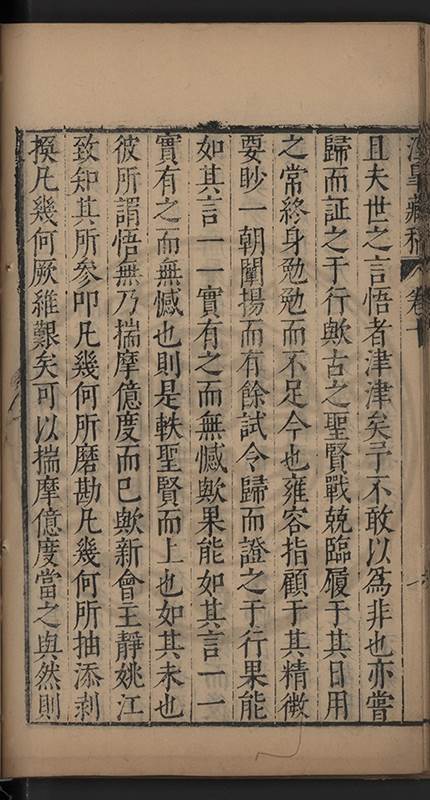 藏稿 卷十
且夫世之言悟者津津矣予不敢以為非也亦嘗
歸而証之于行歟古之聖賢戰兢臨履于其日用
之常終身勉勉而不足今也雍容指顧于其精微
要眇一朝闡揚而有餘試令歸而證之于行果能
如其言一一實有之而無憾歟果能如其言一一
實有之而無憾也則是軼聖賢而上也如其未也
彼所謂悟無乃揣摩億度而已歟新會主靜姚江
致知其所參叩凡幾何所磨勘凡幾何所抽添剥
換凡幾何厥維艱矣可以揣摩億度當之與然則